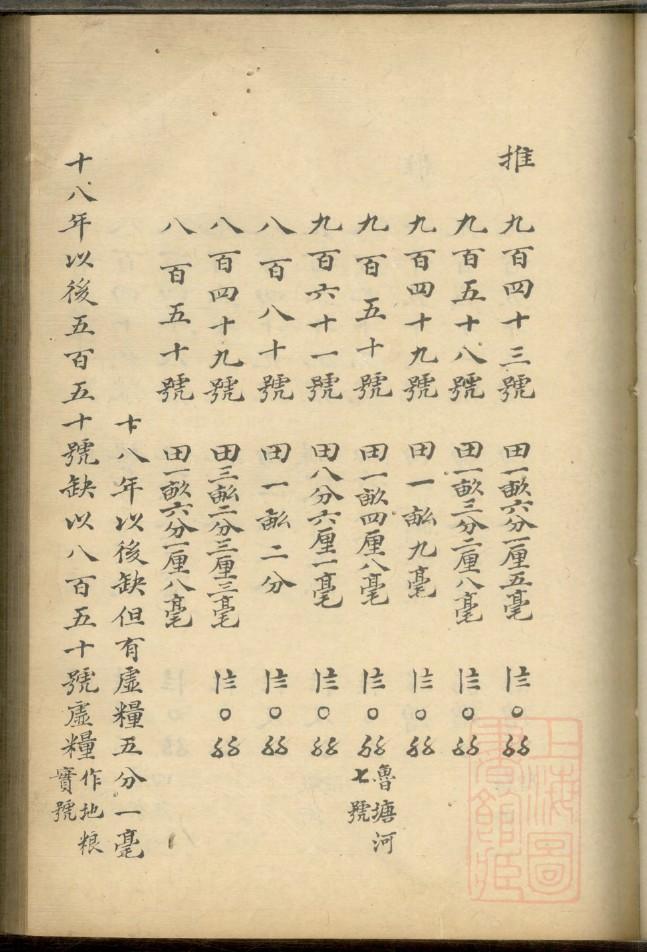 推
九百四十三號 田一畝六分一厘五毫
九百五十八號 田一畝三分二厘八毫
九百四十九號 田一畝九毫
九百五十號 田一畝四厘八毫 魯塘河
七號
九百六十一號 田八分六厘一毫
八百八十號 田一畝二分
八百四十九號 田三畝二分三厘三毫
八百五十號 田一畝六分一厘八毫
十八年以後缺但有虛糧五分一毫
十八年以後五百五十號缺以八百五十號虛糧作地粮
實號
上海圖
書館藏